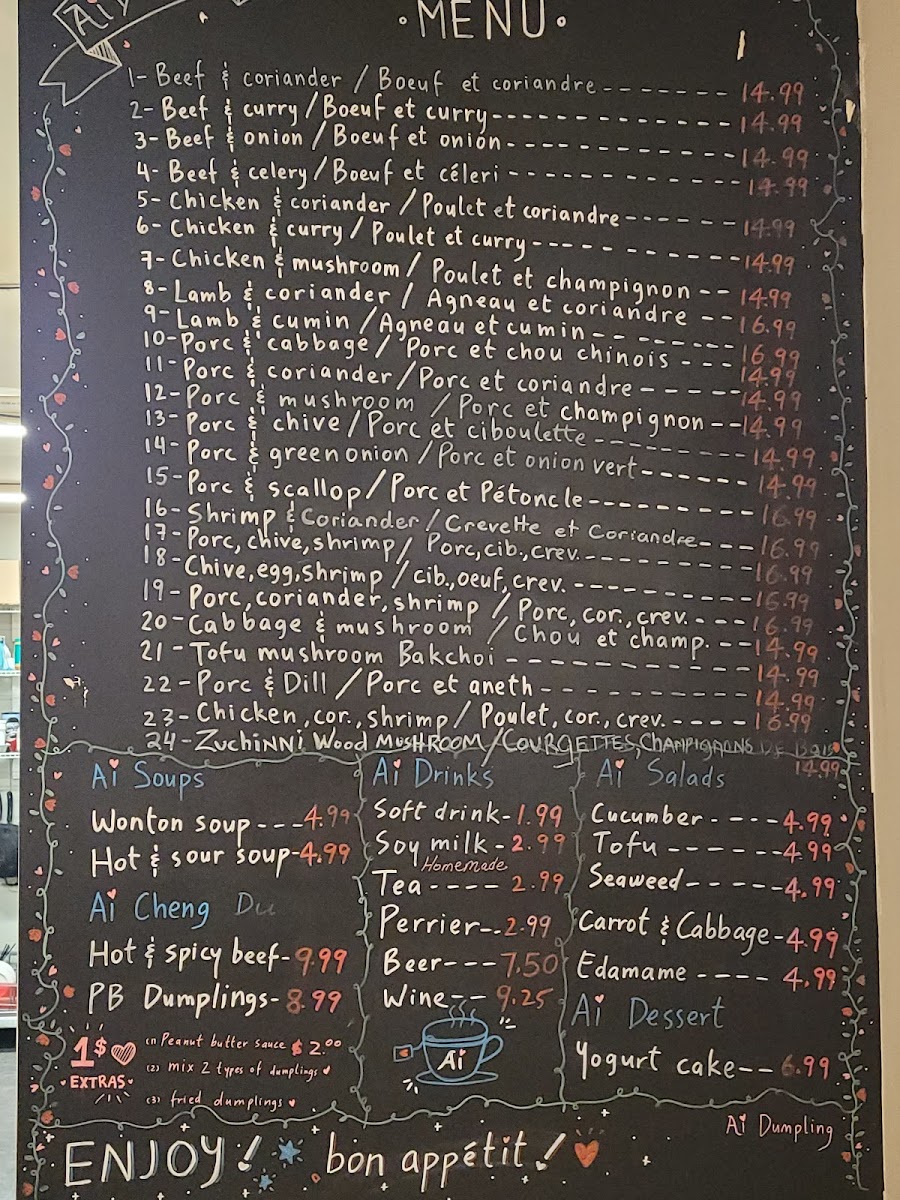 Ai
• MENU •
1- Beef & coriander / Boeuf et coriandre ------- 14.99
2- Beef & curry / Boeuf et curry ------------- 14.99
3- Beef & onion / Boeuf et onion ------------ 14.99
4- Beef & celery / Boeuf et céleri ------------ 14.99
5- Chicken & coriander / Poulet et coriandre ------ 14.99
6- Chicken & curry / Poulet et curry ----------- 14.99
7- Chicken & mushroom / Poulet et champignon -- 14.99
8- Lamb & coriander / Agneau et coriandre -- 16.99
9- Lamb & cumin / Agneau et cumin - ------ 16.99
10- Porc & cabbage / Porc et chou chinois --- 14.99
11- Porc & coriander / Porc et coriandre ---- 14.99
12- Porc & mushroom / Porc et champignon -- 14.99
13- Porc & chive / Porc et ciboulette ------- 14.99
14- Porc & green onion / Porc et onion vert ----- 14.99
15- Porc & scallop / Porc et Pétoncle -------- 16.99
16- Shrimp & Coriander / Crevette et Coriandre --- 16.99
17- Porc, chive, shrimp / Porc, cib., crev. --------- 16.99
18- Chive, egg, shrimp / cib., oeuf, crev. --------- 16.99
19- Porc, coriander, shrimp / Porc, cor., crev. --- 16.99
20- Cabbage & mushroom / Chou et champ. -- 14.99
21- Tofu mushroom Bakchoi ------------ 14.99
22- Porc & Dill / Porc et aneth ---------- 14.99
23- Chicken, cor., shrimp / Poulet, cor., crev. ---- 16.99
24- Zuchinni Wood MUSHROOM / COURGETTES, CHANPIGNONS DE Bois
14.99
Ai Soups
Wonton soup --- 4.99
Hot & sour soup- 4.99
Ai Cheng Du
Hot & spicy beef- 9.99
PB Dumplings- 8.99
1$ EXTRAS
(1) Peanut butter sauce $ 2.00
(2) mix 2 types of dumplings
(3) fried dumplings
Ai Drinks
Soft drink- 1.99
Soy milk - 2.99
Homemade
Tea ---- 2.99
Perrier-- 2.99
Beer--- 7.50
Wine-- 9.25
Ai
Ai Salads
Cucumber ---- 4.99
Tofu ------ 4.99
Seaweed ----- 4.99
Carrot & Cabbage - 4.99
Edamame ---- 4.99
Ai Dessert
Yogurt cake-- 6.99
Ai Dumpling
ENJOY! bon appétit!